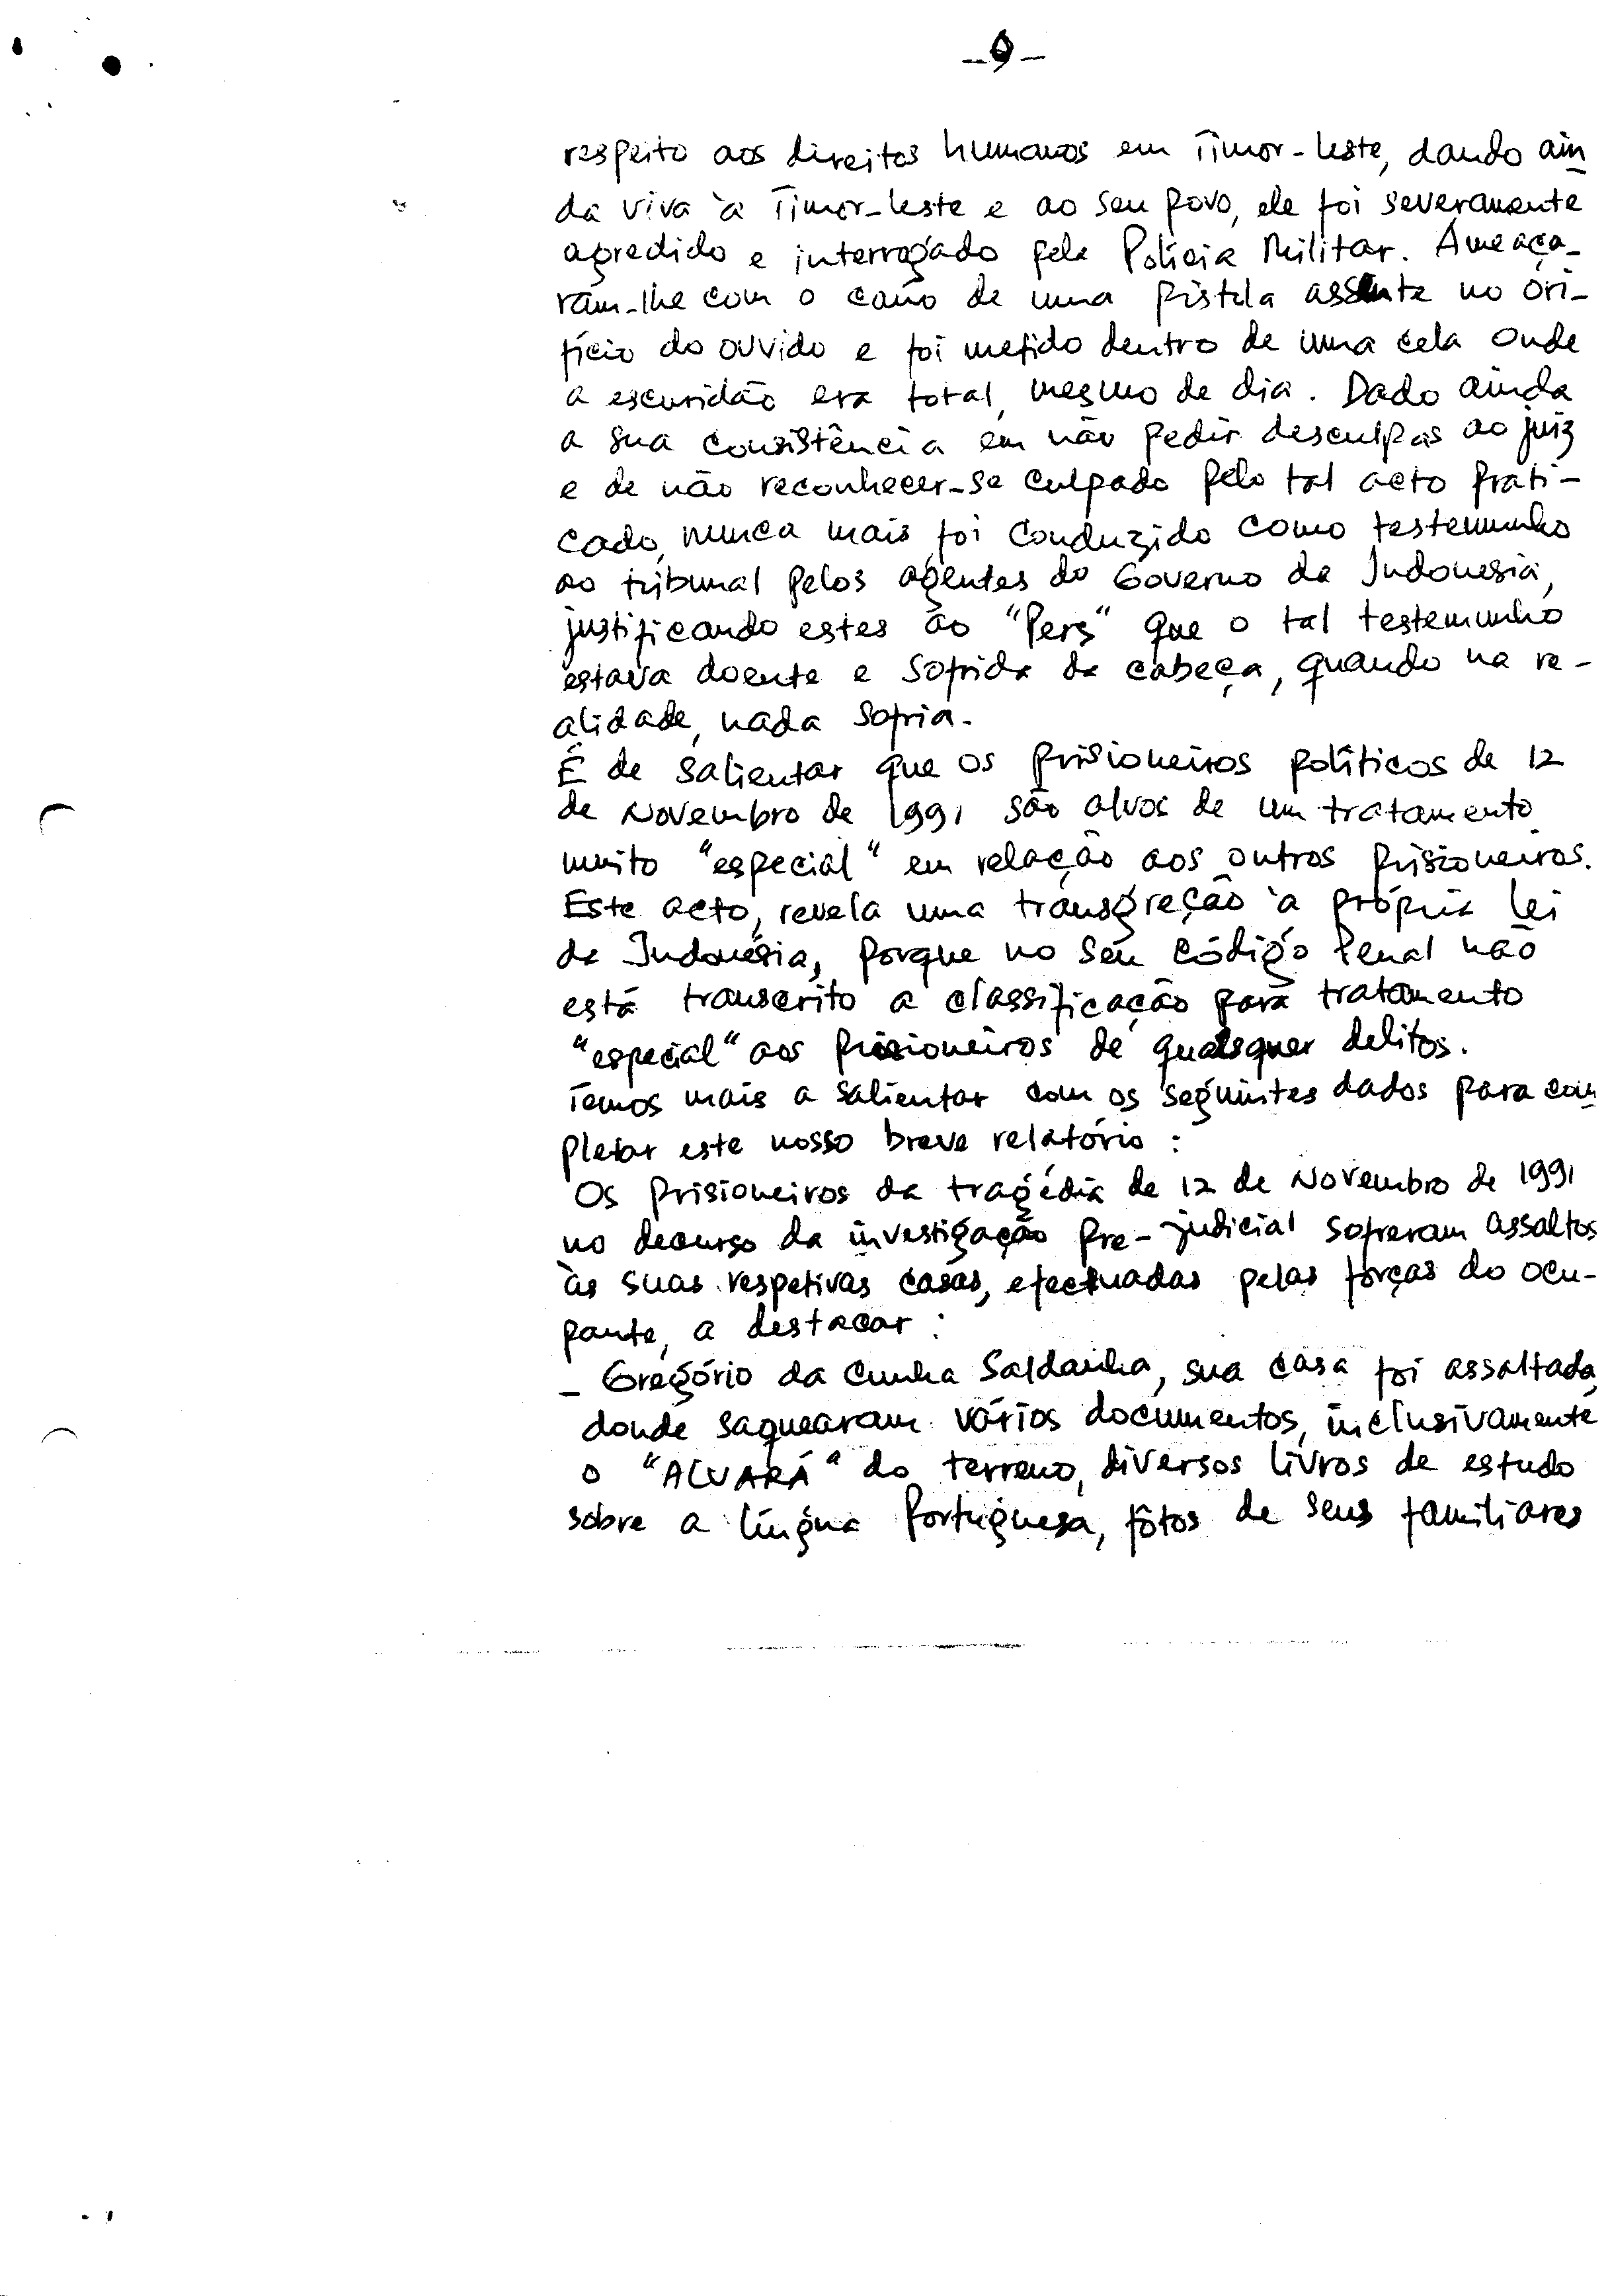 - 9 -
respeito aos direitos humanos em Timor-Leste, dando ain
da viva à Timor-Leste e ao seu povo, ele foi severamente
agredido e interrogado pela Polícia Militar. Ameaça-
ram-lhe com o cano de uma pistola assente no ori-
fício do ouvido e foi metido dentro de uma cela onde
a escuridão era total, mesmo de dia. Dado ainda
a sua consistência em não pedir desculpas ao juiz
e de não reconhecer-se culpado pelo tal acto prati-
cado, nunca mais foi conduzido como testemunho
ao tribunal pelos agentes do Governo da Indonesia,
justificando estes ao "Pers" que o tal testemunho
estava doente e sofrida da cabeça, quando na re-
alidade, nada sofria.
É de salientar que os prisioneiros políticos de 12
de Novembro de 1991 são alvos de um tratamento
muito "especial" em relação aos outros prisioneiros.
Este acto, revela uma transgreção à própria lei
da Indonésia, porque no seu Código Penal não
está transcrito a classificação para tratamento
"especial" aos prisioneiros de quaisquer delitos.
Temos mais a salientar com os seguintes dados para com
pletar este nosso breve relatório :
Os prisioneiros da tragédia de 12 de Novembro de 1991
no decurso da investigação pre-judicial sofreram assaltos
às suas respetivas casas, efectuadas pelas forças do ocu-
pante, a destacar :
- Gregório da Cunha Saldanha, sua casa foi assaltada,
donde saquearam vários documentos, inclusivamente
o "ALVARÁ" do terreno, diversos livros de estudo
sobre a língua Portuguesa, fôtos de seus familiares